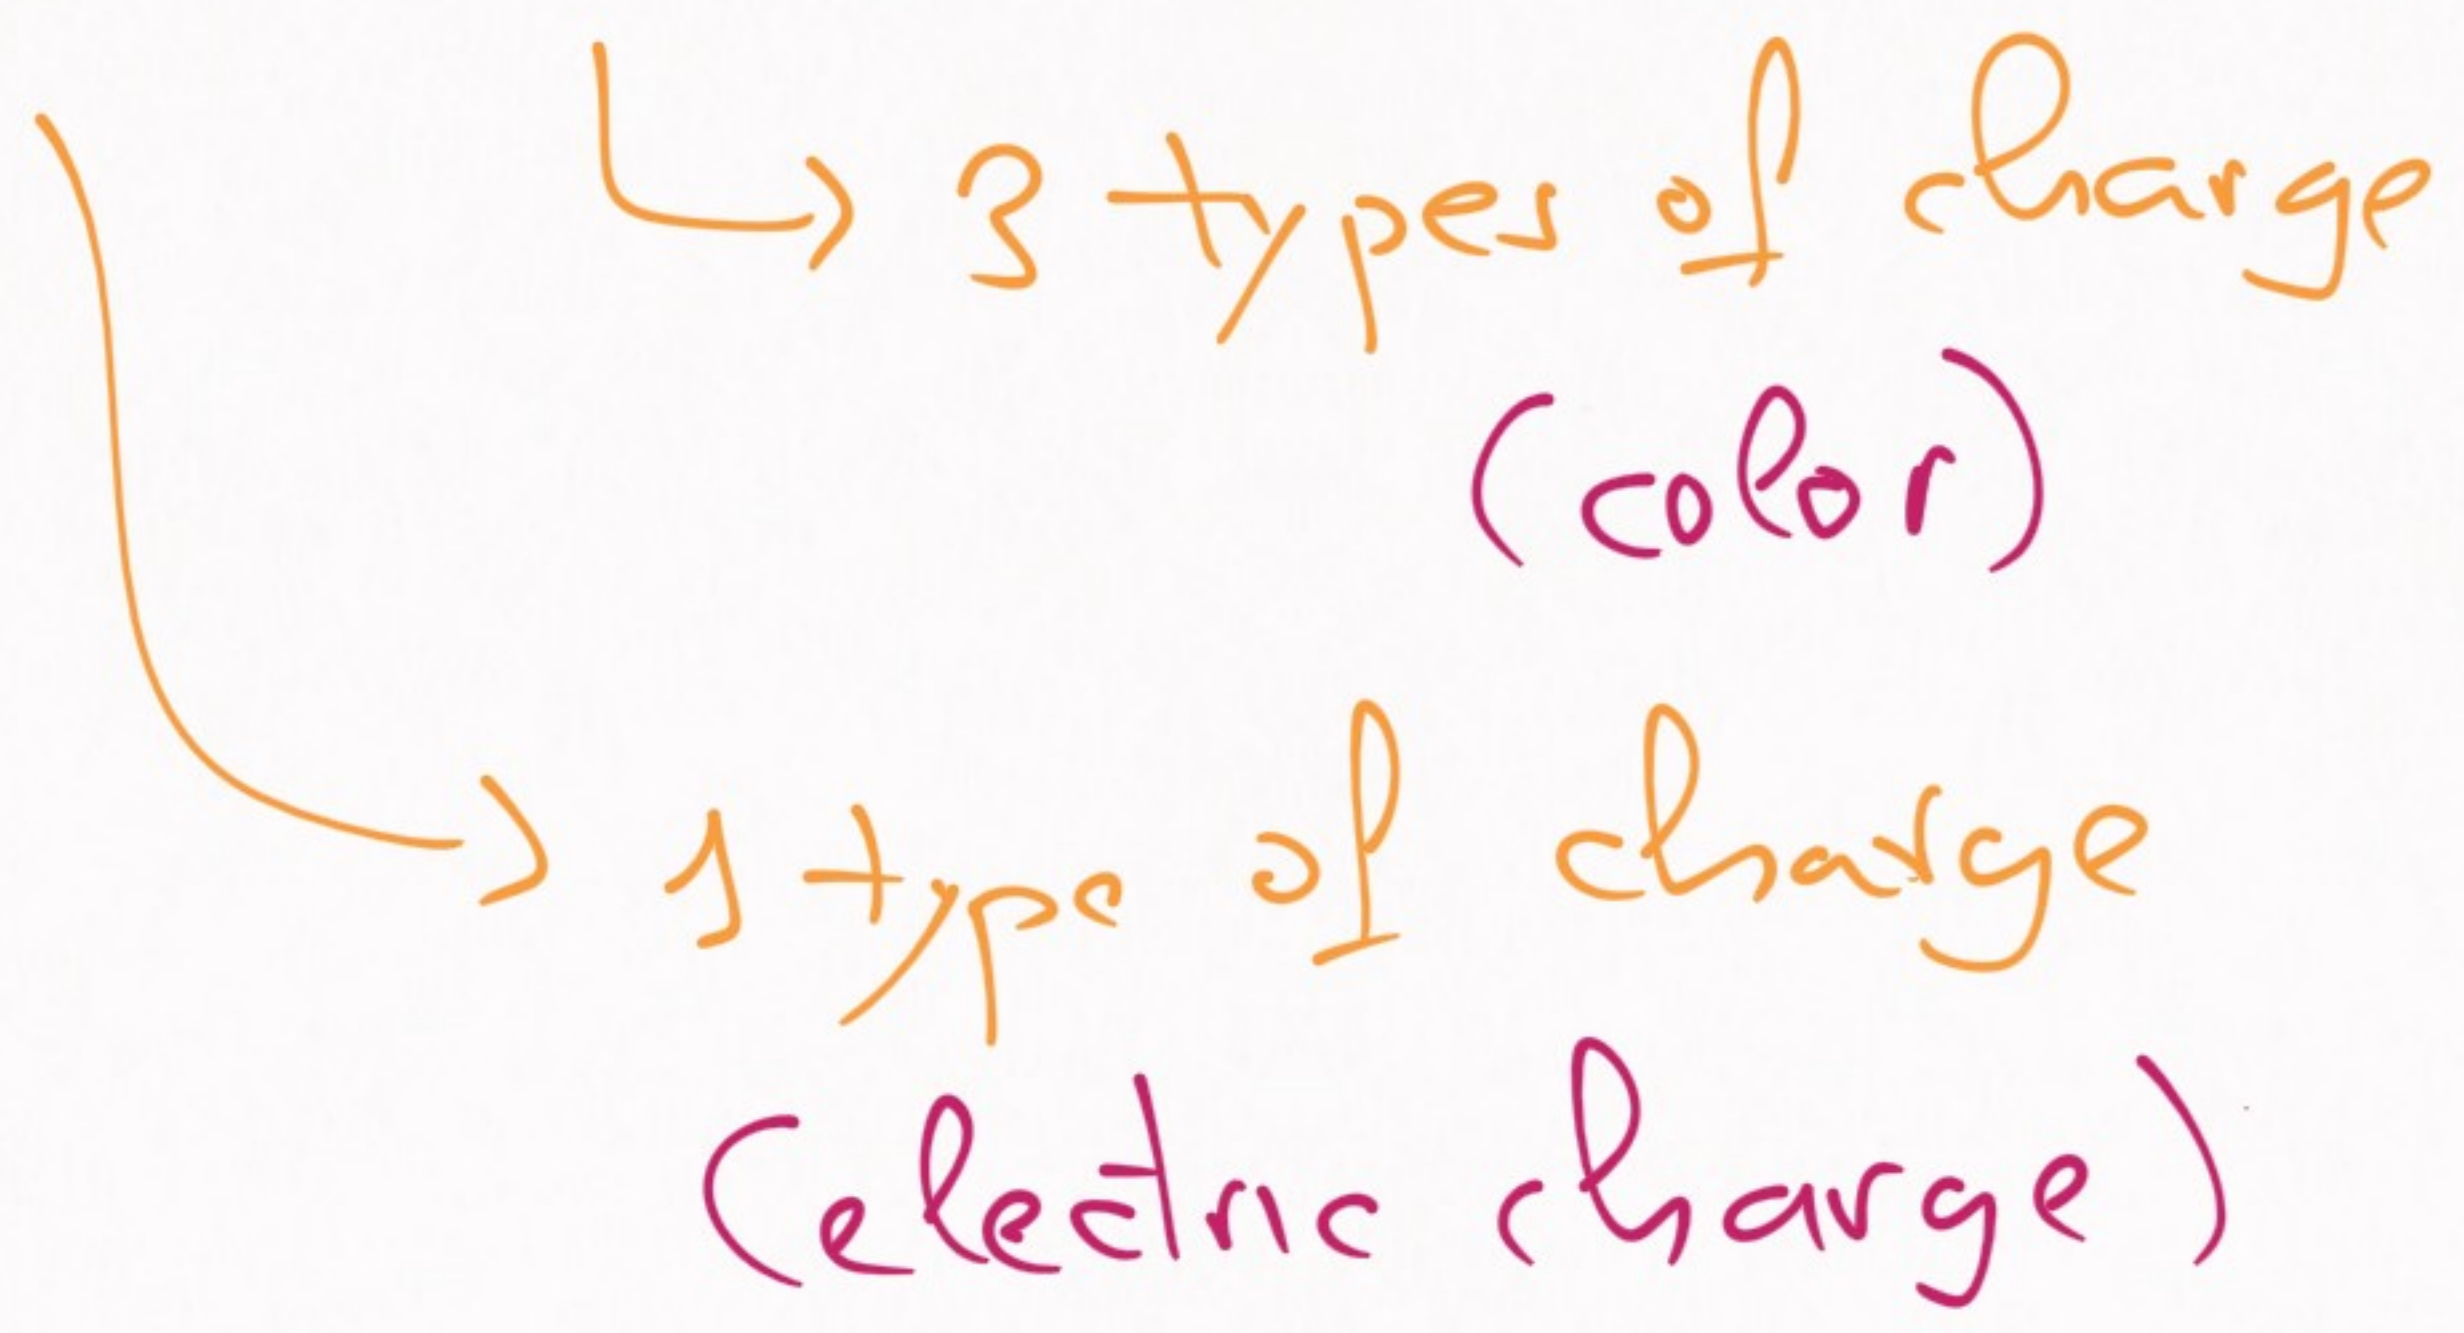 3 types of charge
(color)
1 type of charge
(electric charge)